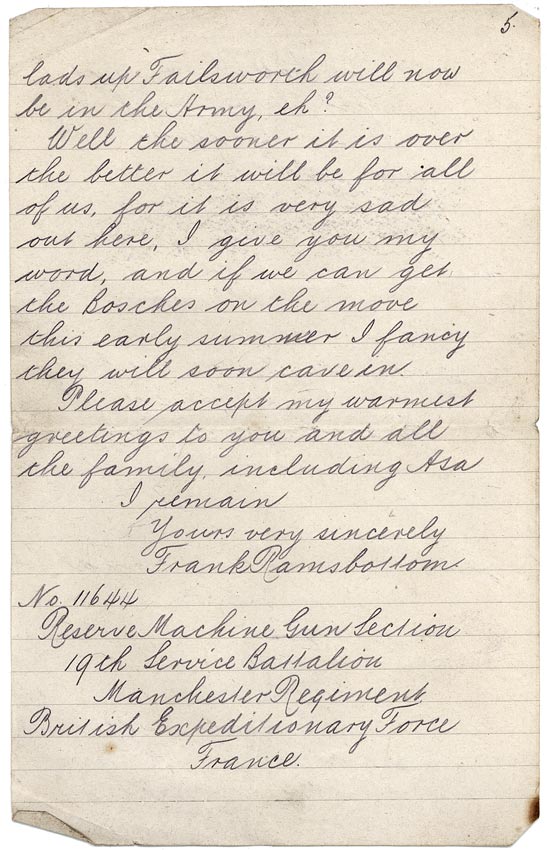 5.
lads up Failsworth will now
be in the Army, eh?
Well the sooner it is over
the better it will be for all
of us, for it is very sad
out here, I give you my
word, and if we can get
the Bosches on the move
this early summer I fancy
they will soon cave in
Please accept my warmest
greetings to you and all
the family, including Asa
I remain
Yours very sincerely
Frank Ramsbottom.
No. 11644
Reserve Machine Gun Section
19th Service Battalion
Manchester Regiment
British Expeditionary Force
France.